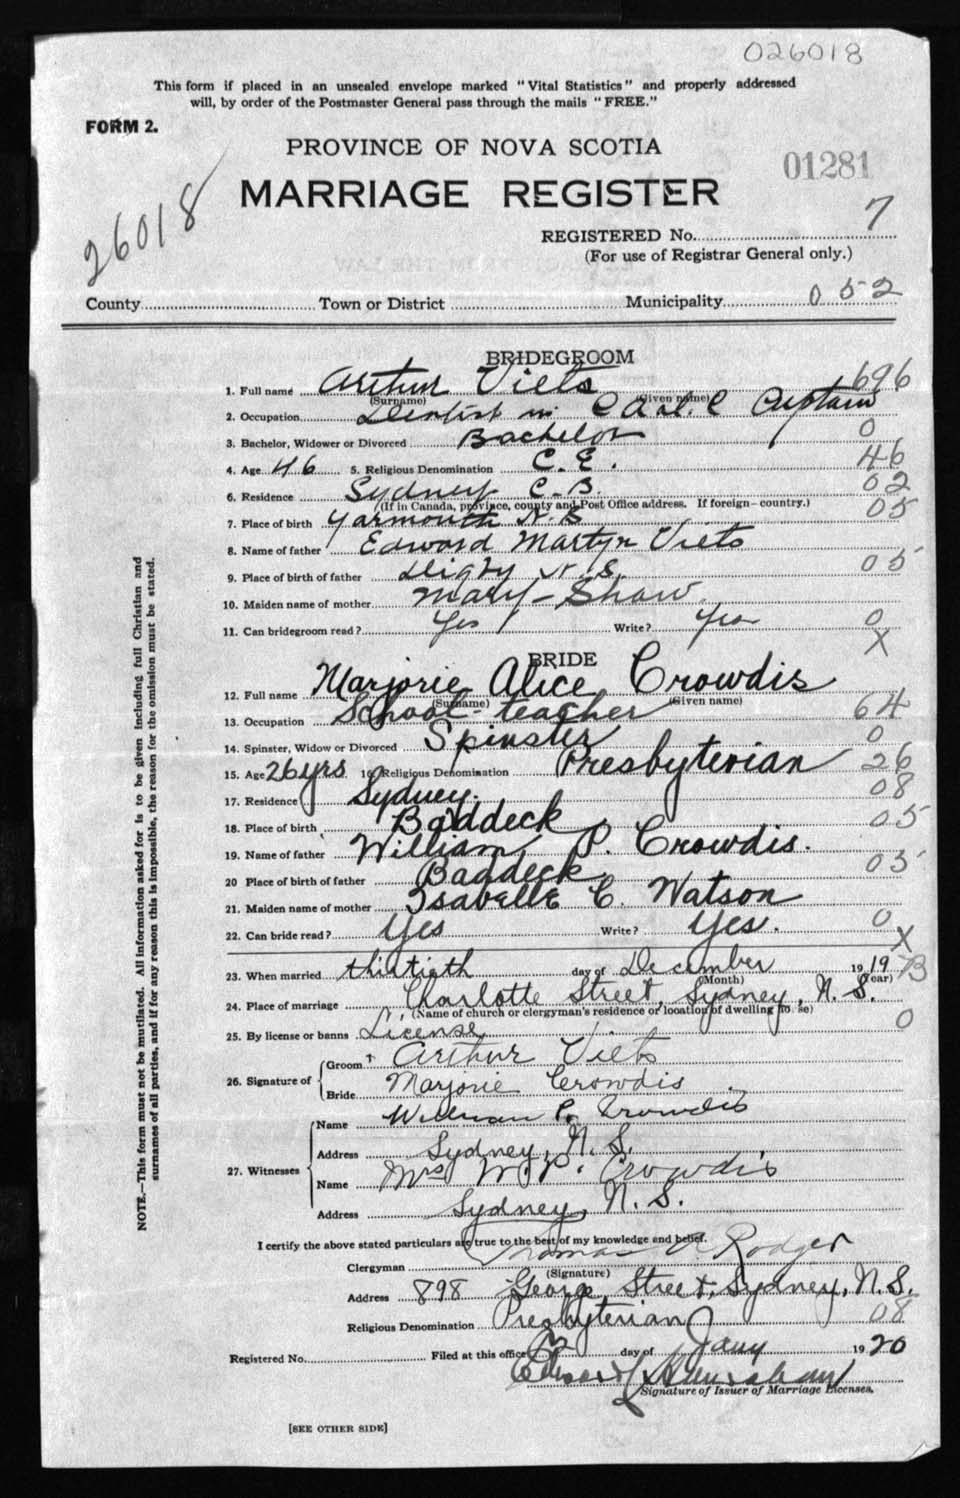 026018
This form if placed in an unsealed envelope marked "Vital Statistics" and properly addressed
will, by order of the Postmaster General pass through the mails "FREE."
FORM 2.
PROVINCE OF NOVA SCOTIA
01281
MARRIAGE REGISTER
26018
7
REGISTERED No.
(For use of Registrar General only.)
County Town or District Municipality 052
BRIDEGROOM
1. Full name Arthur Viets 696
(Surname) (Given name)
2. Occupation Dentist in C A Captain
3. Bachelor, Widower or Divorced Bachelor 0
4. Age 46 5. Religious Denomination C. E. 46
6. Residence Sydney C. B. 02
(If in Canada, province, county and Post Office address. If foreign—country.)
7. Place of birth Yarmouth N. S 05
8. Name of father Edward Martyn Viets
9. Place of birth of father Digby N. S. 05
10. Maiden name of mother Mary Shaw
11. Can bridegroom read? Yes Write? Yes 0
X
BRIDE
12. Full name Marjorie Alice Crowdis
(Surname) (Given name)
13. Occupation School teacher 64
14. Spinster, Widow or Divorced Spinster 0
15. Age 26 yrs 16. Religious Denomination Presbyterian 26
17. Residence Sydney. 08
18. Place of birth Baddeck 05
19. Name of father William P. Crowdis.
20 Place of birth of father Baddeck 05
21. Maiden name of mother Isabelle C. Watson
22. Can bride read? Yes Write? Yes. 0
X
23. When married thirtieth day of December 1919 73
(Month) (Year)
24. Place of marriage Charlotte Street, Sydney, N. S.
(Name of church or clergyman's residence or location of dwelling house)
25. By license or banns License 0
26. Signature of Groom Arthur Viets
Bride Marjorie Crowdis
27. Witnesses Name William P. Crowdis
Address Sydney, N. S.
Name Mrs W. P. Crowdis
Address Sydney, N. S.
I certify the above stated particulars are true to the best of my knowledge and belief.
Clergyman Thomas A Rodger
(Signature)
Address 898 George Street, Sydney, N. S.
Religious Denomination Presbyterian 08
Registered No. Filed at this office 2 day of Jany 1920
Edward
Signature of Issuer of Marriage Licenses.
[SEE OTHER SIDE]
NOTE.—This form must not be mutilated. All information asked for is to be given including full Christian and
surnames of all parties, and if for any reason this is impossible, the reason for the omission must be stated.